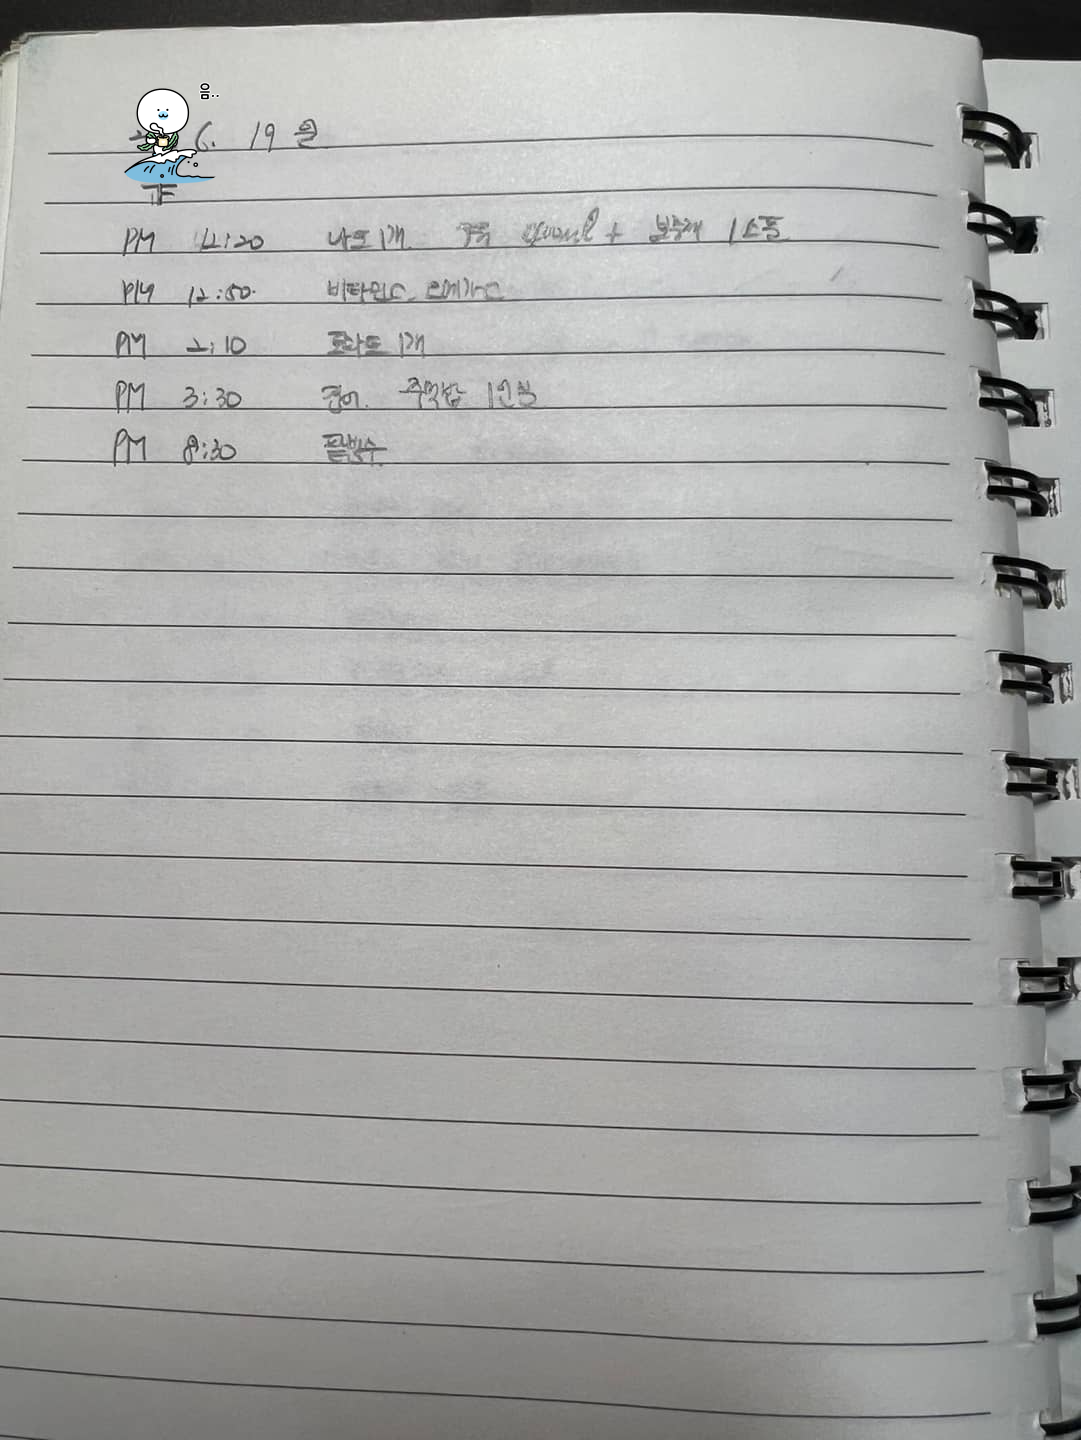 음..
6. 19 월
PM 12:20 나또 1개 두유 + 보충제 1스푼
PM 12:50 비타민C, 오메가3
PM 2:10 토마토 1개
PM 3:30 주먹밥 1인분
PM 8:30 팥빙수